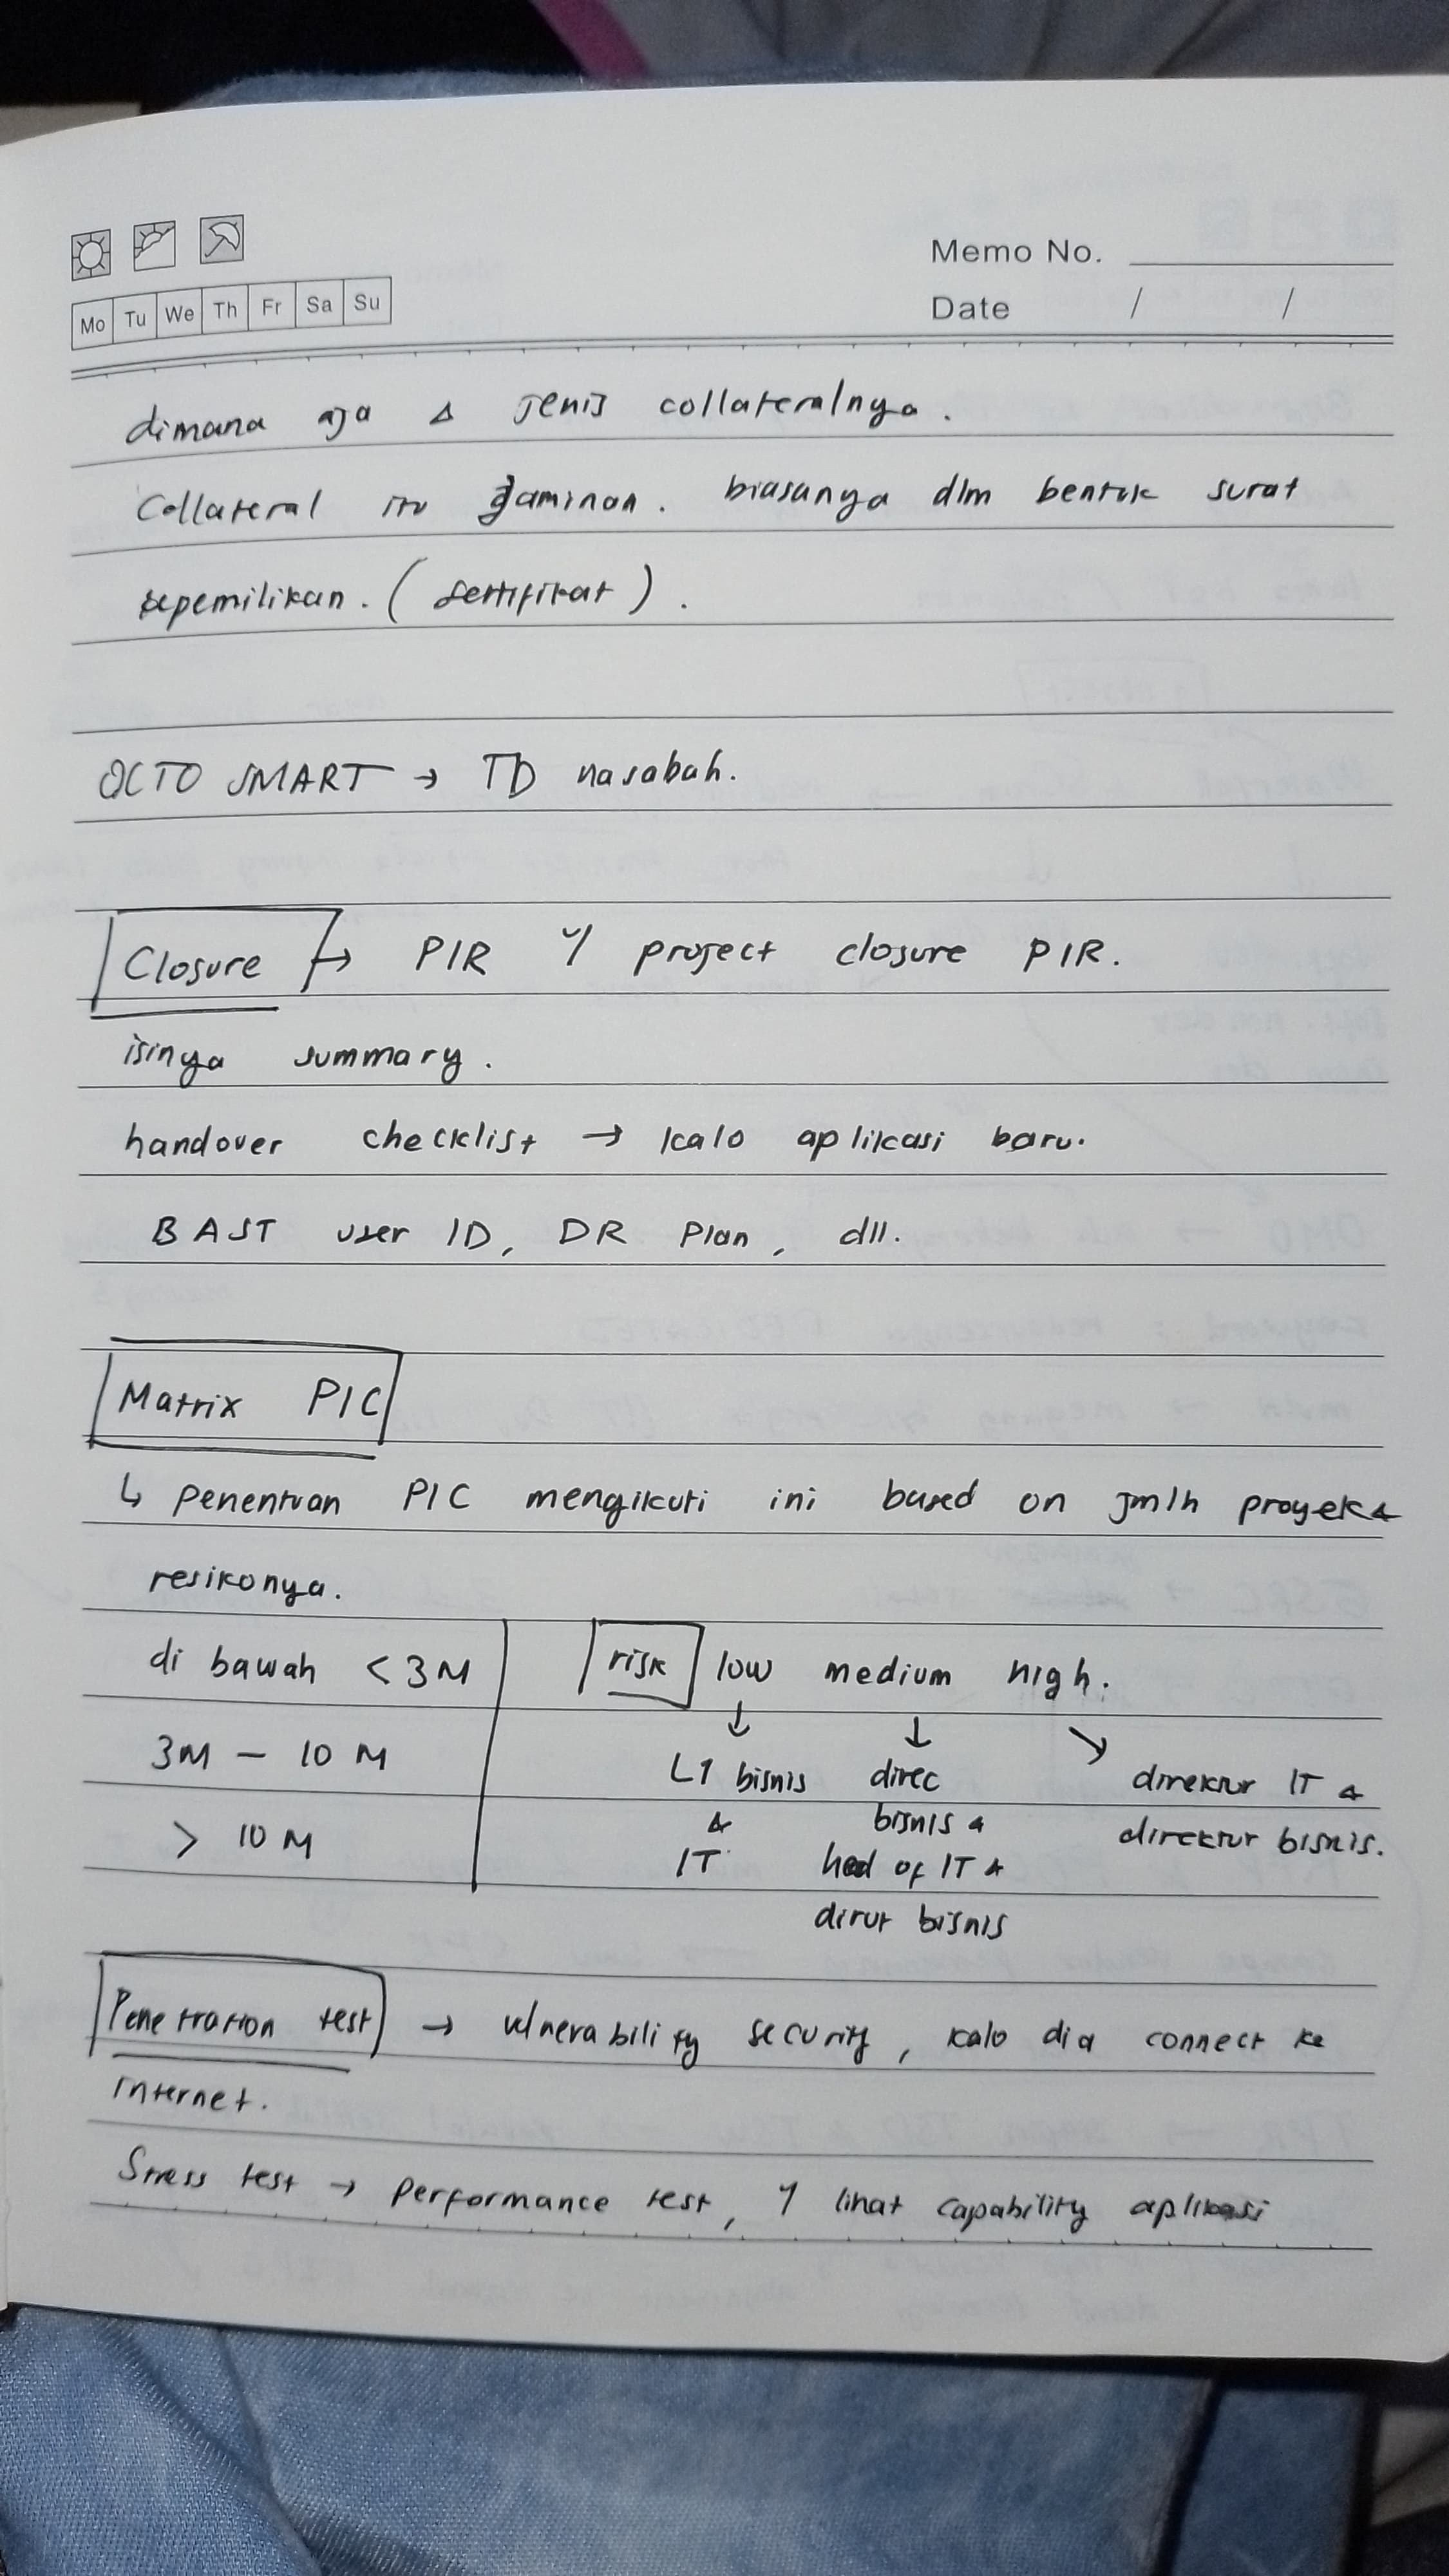 Memo No.
Mo Tu We Th Fr Sa Su
Date / /
dimana aja & jenis collateralnya.
Collateral itu jaminan. biasanya dlm bentuk surat
kepemilikan. (sertifikat).
OCTO SMART → TD nasabah.
Closure → PIR y/ project closure PIR.
isinya summary.
handover checklist → kalo aplikasi baru.
BAST user ID, DR Plan, dll.
Matrix PIC
↳ penentuan PIC mengikuti ini based on jmlh proyek &
resikonya.
di bawah < 3M
risk low medium high.
3M – 10 M
> 10 M
↓ ↓ ↘
L1 bisnis & IT
direc bisnis & head of IT & dirut bisnis
direktur IT & direktur bisnis.
Penetration test → vulnerability security, kalo dia connect ke
internet.
Stress test → performance test, y lihat capability aplikasi